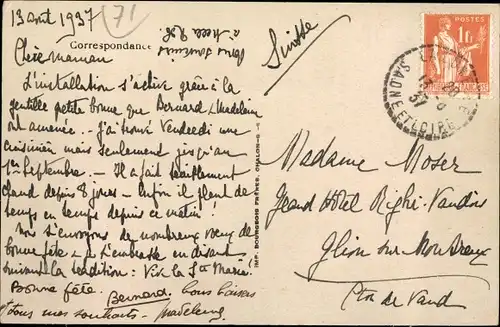 13 août 1937
71
Bons souvenirs
à
Correspondance
Chère Maman
L'installation s'active grâce à la
gentille petite bonne que Bernard & Madeleine
ont amenée.. J'ai trouvé Vendredi une
cuisinière mais seulement jusqu'au
1er Septembre. - Il a fait terriblement
chaud depuis 8 jours - Enfin il pleut de
temps en temps depuis ce matin!
Nous t'envoyons de nombreux vœux de
bonne fête & je t'embrasse en disant
suivant la tradition : Vive la Ste Marie!
Bonne fête. Bernard. bons baisers
& tous mes souhaits - Madeleine
IMP. BOURGEOIS FRÈRES, CHALON-S-S
Suisse
POSTES
1F
SAONE ET LOIRE
13 -8
37
Madame Moser
Grand Hôtel Righi-Vaudois
Glion sur Montreux
Cton de Vaud